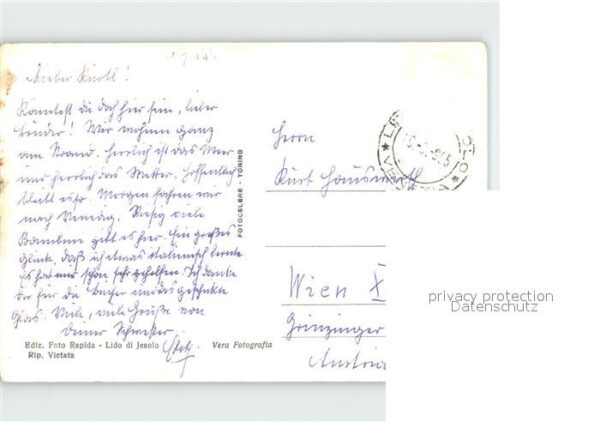 Lieber Kurtl!
Könntest du doch hier sein, lieber
Bruder! Wir wohnen ganz
am Strand. Herrlich ist das Meer
herrlich das Wetter. Hoffentlich
bleibt es so. Morgen fahren wir
nach Venedig. Riesig viele
Bambini gibt es hier. Ein großes
Glück, daß ich etwas italienisch lernte
Es hat mir schon sehr geholfen. Ich danke
dir für die Bücher und das geschickte
Glas. Viele, viele Grüße von
Deiner Schwester
Ediz. Foto Rapida - Lido di Jesolo
Vera Fotografia
Rip. Vietata
FOTOCELERE - TORINO
Herrn
Kurt
Wien X
Grinzinger
Austria
privacy protection
Datenschutz